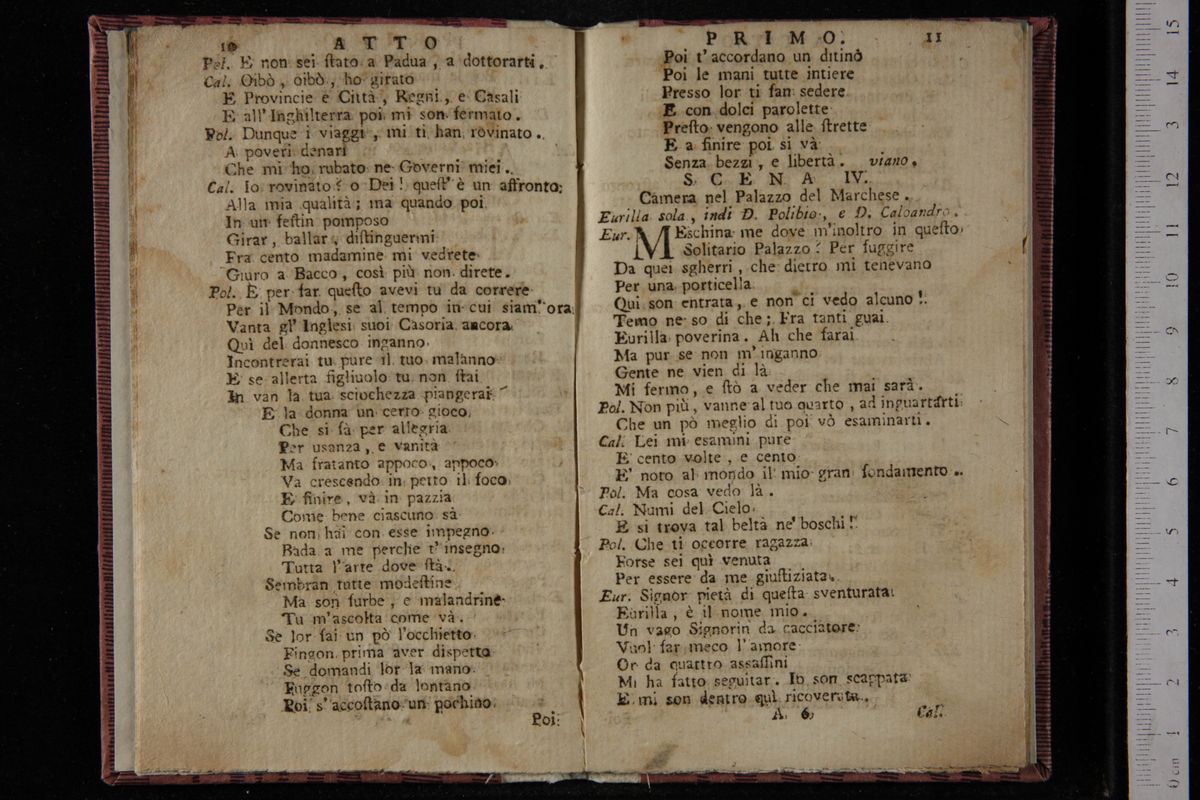 10 ATTO
Pol. E non sei ſtato a Padua, a dottorarti.
Cal. Oibò, oibò, ho girato
E Provincie e Città, Regni, e Casali
E all' Inghilterra poi mi son fermato.
Pol. Dunque i viaggi, mi ti han rovinato.
A poveri denari
Che mi ho rubato ne Governi miei.
Cal. Io rovinato? o Dei! queſt' è un affronto;
Alla mia qualità; ma quando poi
In un feſtin pomposo
Girar, ballar, diſtinguermi
Fra cento madamine mi vedrete
Giuro a Bacco, così più non direte.
Pol. E per far queſto avevi tu da correre
Per il Mondo, se al tempo in cui siam' ora
Vanta gl' Inglesi suoi Casoria ancora
Quì del donnesco inganno
Incontrerai tu pure il tuo malanno
E se allerta figliuolo tu non ſtai
In van la tua sciochezza piangerai
E la donna un certo gioco
Che si fà per allegria
Per usanza, e vanità
Ma fratanto appoco, appoco
Va crescendo in petto il foco
E finire, và in pazzia
Come bene ciascuno sà
Se non hai con esse impegno
Bada a me perche t' insegno
Tutta l' arte dove ſtà.
Sembran tutte modeſtine
Ma son furbe, e malandrine
Tu m'ascolta come và.
Se lor fai un pò l'occhietto
Fingon prima aver dispetto
Se domandi lor la mano
Fuggon toſto da lontano
Poi s' accoſtano un pochino
Poi
PRIMO. 11
Poi t' accordano un ditinò
Poi le mani tutte intiere
Presso lor ti fan sedere
E con dolci parolette
Preſto vengono alle ſtrette
E a finire poi si và
Senza bezzi, e libertà. viano.
SCENA IV.
Camera nel Palazzo del Marchese.
Eurilla sola, indi D. Polibio, e D. Caloandro.
Eur. MEschina me dove m'inoltro in queſto
Solitario Palazzo? Per fuggire
Da quei sgherri, che dietro mi tenevano
Per una porticella
Qui son entrata, e non ci vedo alcuno!
Temo ne so di che; Fra tanti guai
Eurilla poverina. Ah che farai
Ma pur se non m' inganno
Gente ne vien di là
Mi fermo, e ſtò a veder che mai sarà.
Pol. Non più, vanne al tuo quarto, ad inguartarti
Che un pò meglio di poi vò esaminarti.
Cal. Lei mi esamini pure
E cento volte, e cento
E' noto al mondo il mio gran fondamento.
Pol. Ma cosa vedo là.
Cal. Numi del Cielo
E si trova tal beltà ne' boschi!
Pol. Che ti occorre ragazza
Forse sei quì venuta
Per essere da me giuſtiziata.
Eur. Signor pietà di queſta sventurata
Eurilla, è il nome mio.
Un vago Signorin da cacciatore
Vuol far meco l' amore
Or da quattro assaſſini
Mi ha fatto seguitar. Io son scappata
E mi son dentro quì ricoverata.
A 6 Cal.